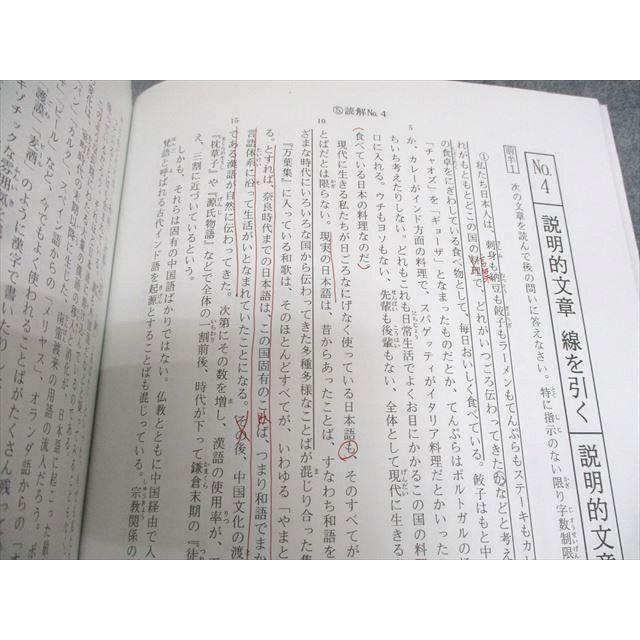 ⑤読解No.4
No.4 説明的文章 線を引く 説明的文章
読解1 次の文章を読んで後の問いに答えなさい。特に指示のない限り字数制限
①私たち日本人は、刺身も納豆も餃子もラーメンもてんぷらもステーキもカ
れがもともとどこの国の料理で、どれがいつごろ伝わってきたのかなどと考え
の食卓をにぎわしている食べ物として、毎日おいしく食べている。餃子はもと中
「チャオズ」を「ギョーザ」となまったものだとか、てんぷらはポルトガルの
か、カレーがインド方面の料理で、スパゲッティがイタリア料理だとかいった
ちいち考えたりしない。どれもこれも日常生活でよくお目にかかるこの国の料理
口に入れる。ウチもヨソもない、先輩も後輩もない、全体として現代に生きる
食べている日本の料理なのだ。
現代に生きる私たちが日ごろなにげなく使っている日本語も、そのすべてが
とばだとは限らない。現実の日本語は、昔からあったことば、すなわち和語を
ざまな時代にいろいろな国から伝わってきた多種多様なことばが混じり合った集
『万葉集』に入っている和歌は、そのほとんどすべてが、いわゆる「やまと
る。とすれば、奈良時代までの日本語は、この国固有のことば、つまり和語でまか
言語体系に沿って生活がいとなまれていたことになる。その後、中国文化の渡
である漢語が自然に伝わってきた。次第にその数を増し、漢語の使用率が、
『枕草子』や『源氏物語』などで全体の一割前後、時代が下って鎌倉末期の『徒
え、三割に近づいているという。
しかも、それらは固有の中国語ばかりではない。仏教とともに中国経由で入
梵語と呼ばれる古代インド語を起源とすることばも混じっている。宗教関係の
日本語に起こった最
蜜渡来の用語の流入だろう。ポ
スペイン語からの「メリヤス」、オランダ語からの
「ビール」など、今でもよく使われることばがたくさん残って
「麦酒」のように漢字で書いたり
ゾチックな雰囲気